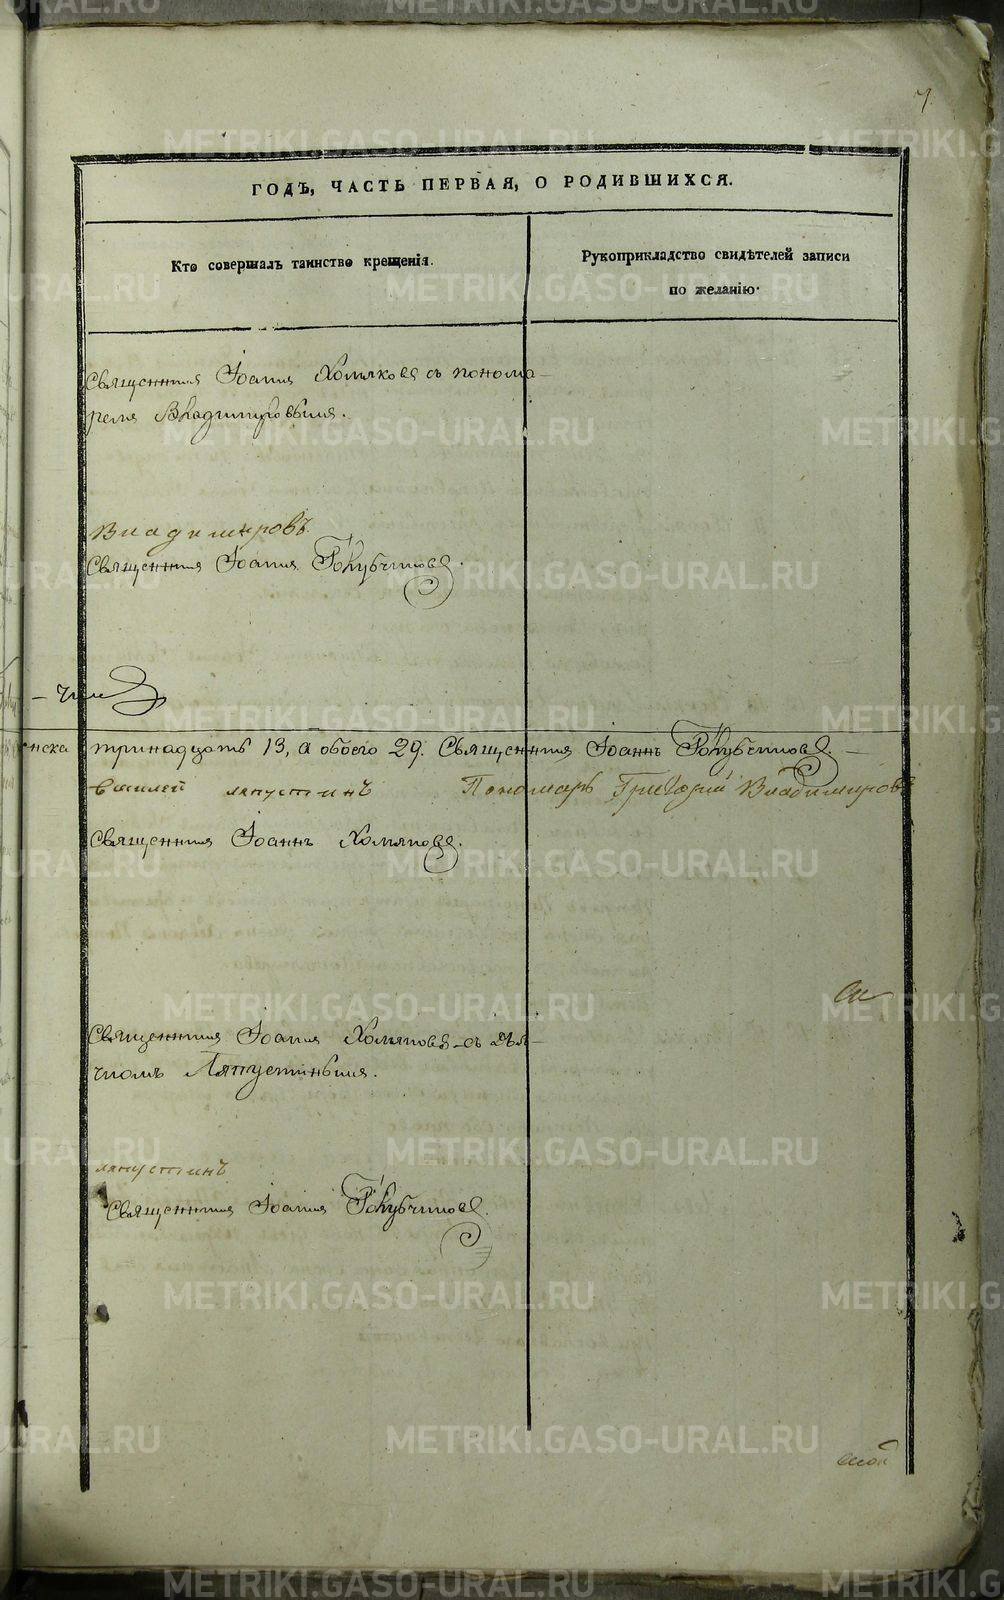 7.
ГОДЪ, ЧАСТЬ ПЕРВАЯ, О РОДИВШИХСЯ.
Кто совершалъ таинство крещенія.
Рукоприкладство свидѣтелей записи
по желанію.
Священник Іоанн Хомяков съ понома-
рем Владимировым.
Владимировъ
Священник Іоанн
тринадцать 13, а обоего 29. Священник Іоаннъ
Василей ляпустинъ Пономарь Григорий Владимировъ
Священник Іоаннъ Хомяков.
Священник Іоанн Хомяков съ дья-
чкомъ Ляпустиным.
ляпустинъ
Священник Іоанн
METRIKI.GASO-URAL.RU